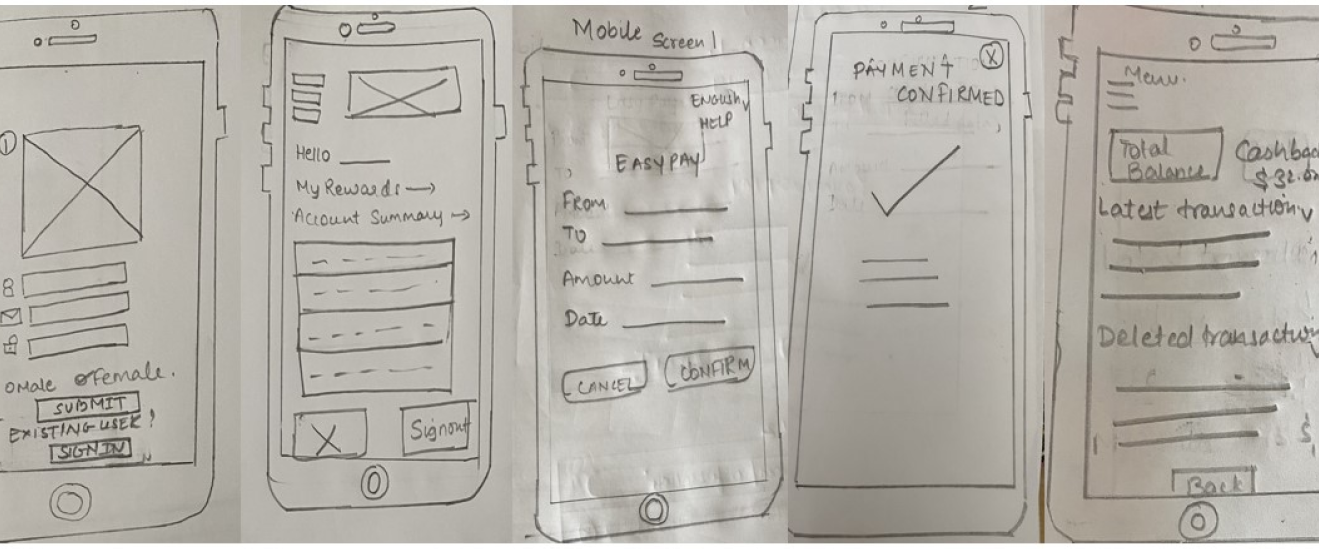 1
O Male O Female.
SUBMIT
EXISTING USER?
SIGN IN
Hello
My Rewards →
Account Summary →
X
Signout
Mobile Screen 1
ENGLISH
HELP
EASYPAY
FROM
TO
Amount
Date
CANCEL
CONFIRM
X
PAYMENT
CONFIRMED
Menu.
Total
Balance
Cashbac
$32.0
Latest transaction
Deleted transaction
$
Back